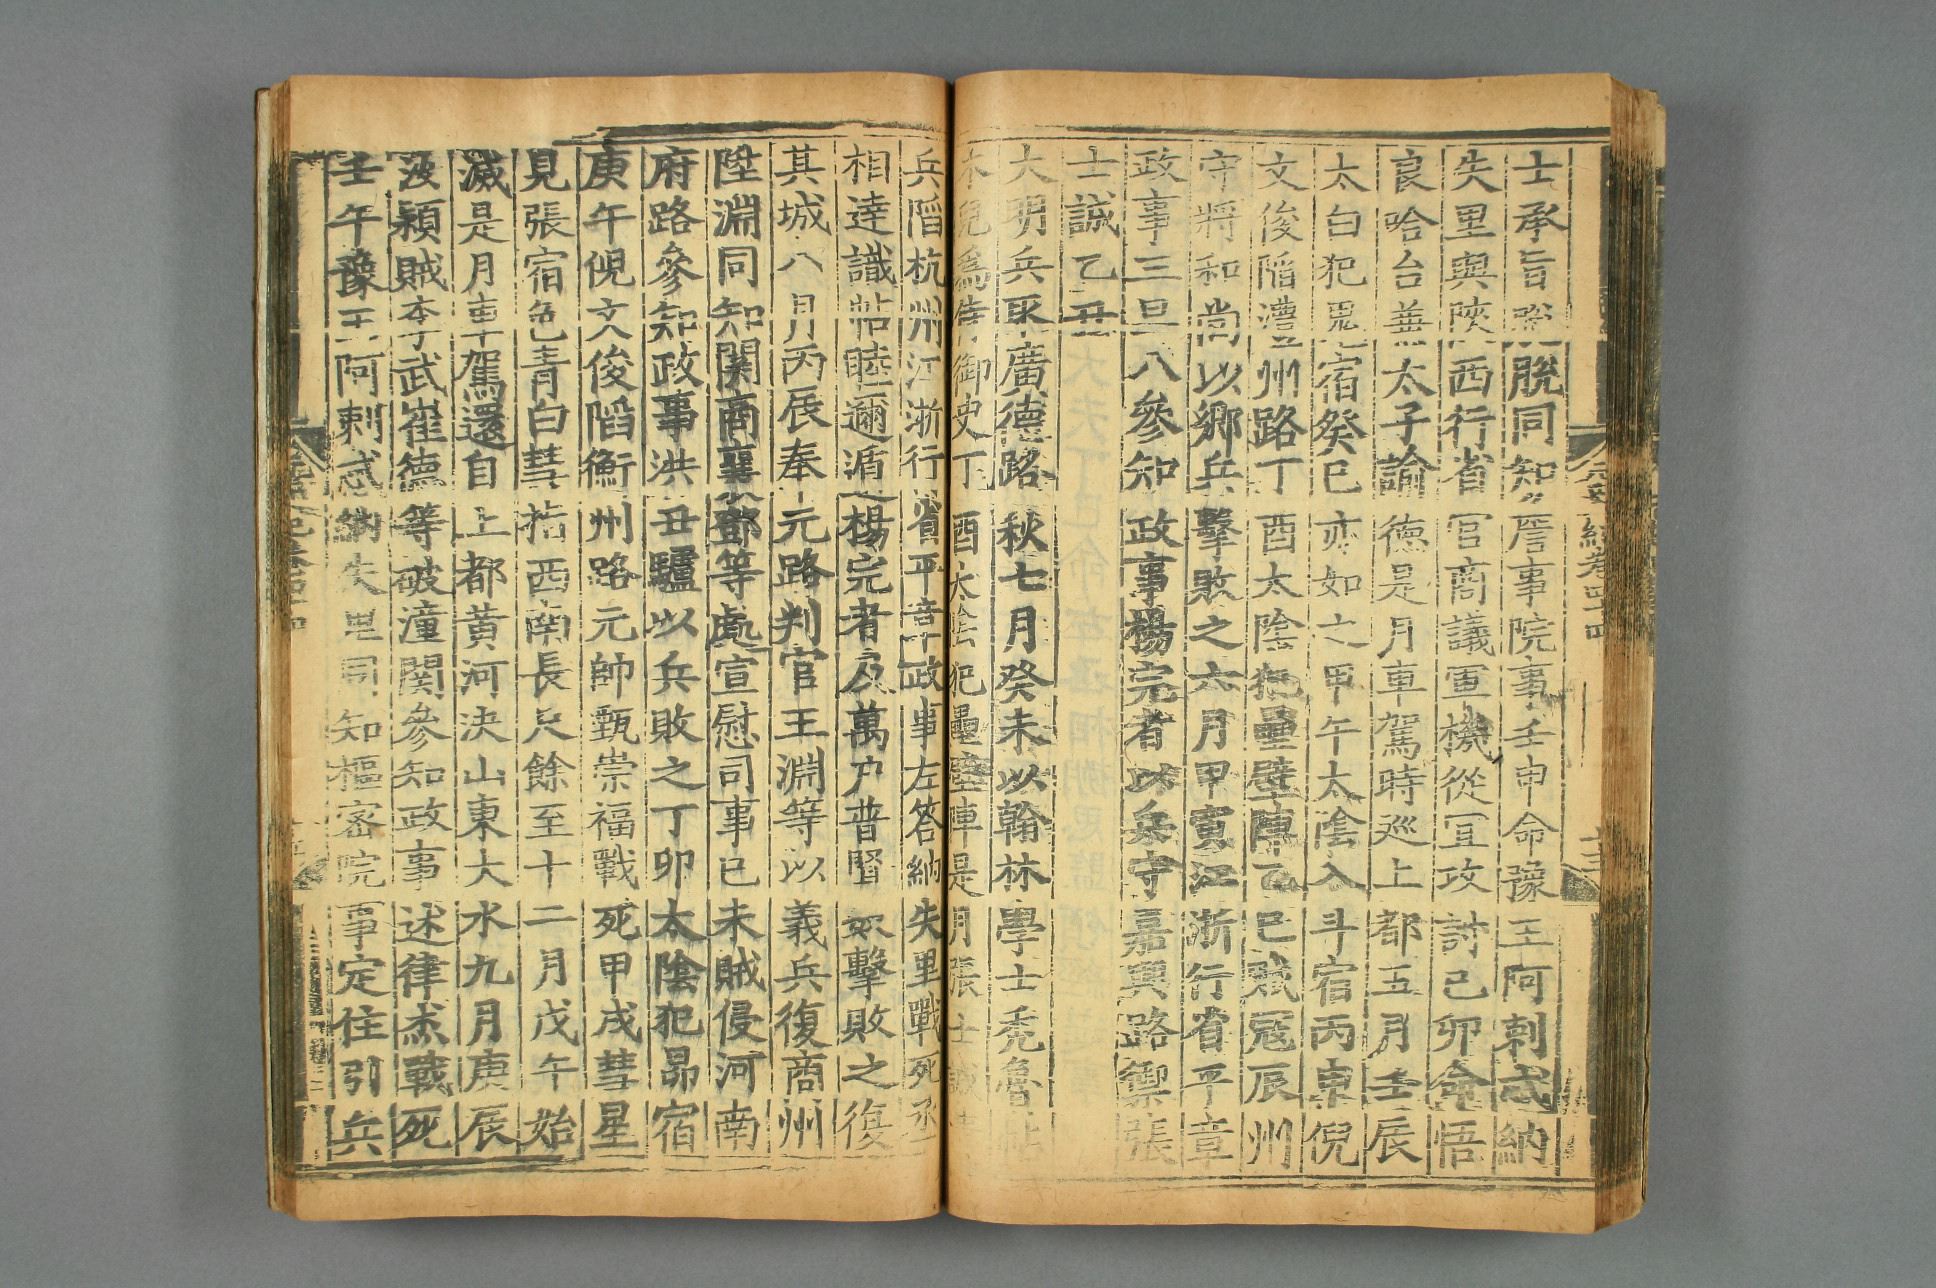 士承旨 脫同知詹事院事壬申命豫王阿剌忒納
失里與陝西行省官商議軍機從宜攻討己卯命悟
良哈台 太子諭德是月車駕時巡上都五月壬辰
太白犯鬼宿癸巳亦如之甲午太陰入斗宿丙申倪
文俊陷澧州路丁酉太陰犯壘壁陣乙巳賊寇辰州
守將和尚以鄉兵擊敗之六月甲寅江浙行省平章
政事三旦八參知政事楊完者以兵守嘉興路禦張
士誠乙丑
大明兵取廣德路秋七月癸未以翰林學士禿魯帖
木兒為侍御史丁酉太陰犯壘壁陣是月張士誠
兵陷杭州江浙行省平章政事左答納失里戰死丞
相達識帖睦邇遁楊完者及萬戶普賢奴擊敗之復
其城八月丙辰奉元路判官王淵等以義兵復商州
陞淵同知關商襄鄧等處宣慰司事己未賊侵河南
府路參知政事洪丑驢以兵敗之丁卯太陰犯昴宿
庚午倪文俊陷衡州路元帥甄崇福戰死甲戌彗星
見張宿色青白彗指西南長尺餘至十二月戊午始
滅是月車駕還自上都黃河決山東大水九月庚辰
汝潁賊李武崔德等破潼關參知政事述律杰戰死
壬午豫王阿剌忒納失里同知樞密院事定住引兵